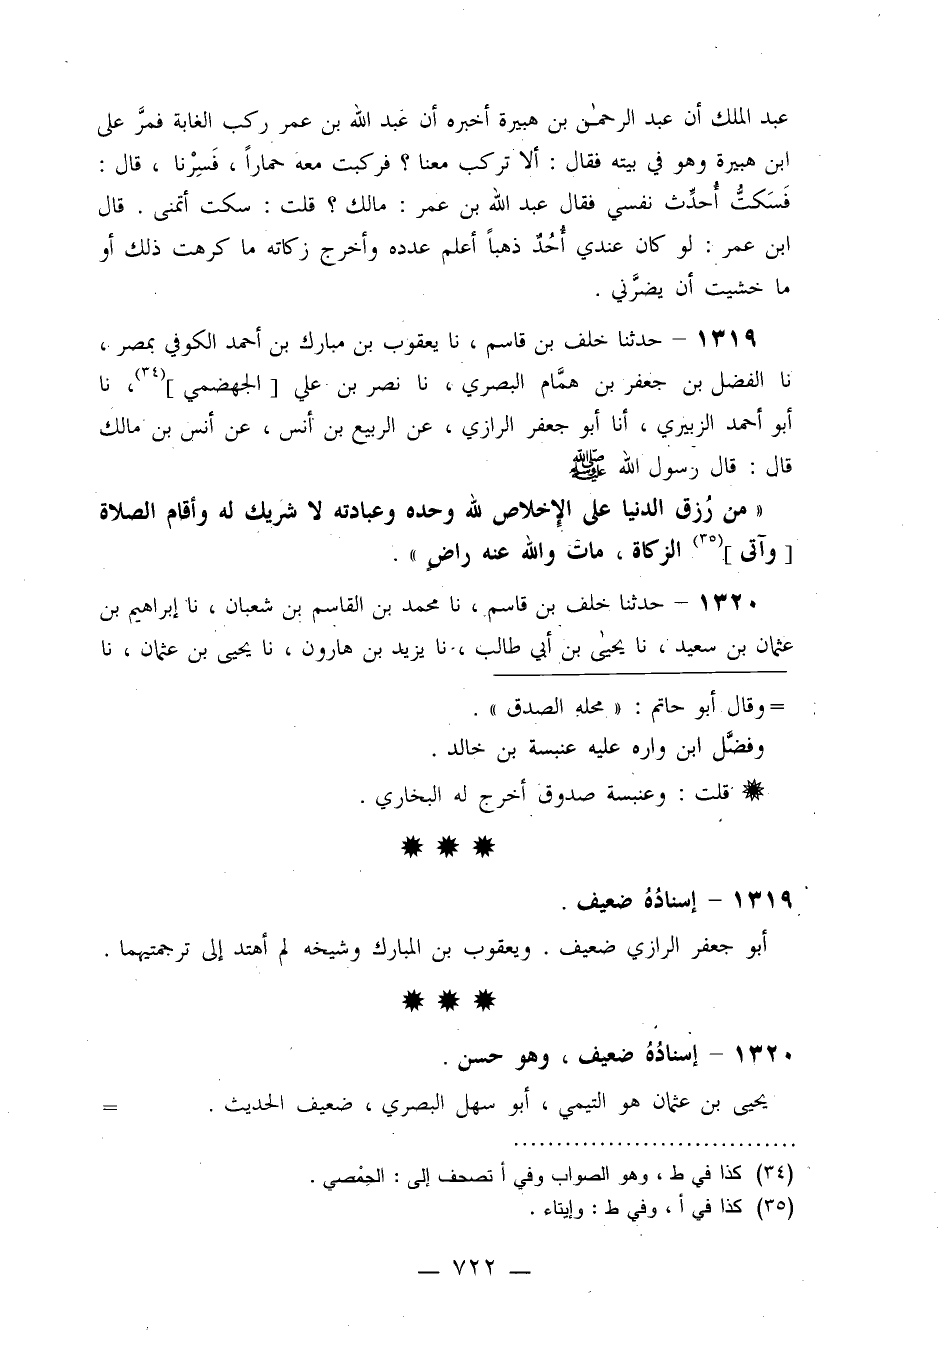 عبد الملك أن عبد الرحمٰن بن هبيرة أخبره أن عبد الله بن عمر ركب الغابة فمرَّ على
ابن هبيرة وهو في بيته فقال : ألا تركب معنا ؟ فركبت معه حماراً ، فَسِرْنا ، قال :
فَسَكتُّ أُحدِّث نفسي فقال عبد الله بن عمر : مالك ؟ قلت : سكت أتمنى . قال
ابن عمر : لو كان عندي أُحُدٌ ذهباً أعلم عدده وأخرج زكاته ما كرهت ذلك أو
ما خشيت أن يضرَّني .
١٣١٩ – حدثنا خلف بن قاسم ، نا يعقوب بن مبارك بن أحمد الكوفي بمصر ،
نا الفضل بن جعفر بن همَّام البصري ، نا نصر بن علي [ الجهضمي ](٣٤)، نا
أبو أحمد الزبيري ، أنا أبو جعفر الرازي ، عن الربيع بن أنس ، عن أنس بن مالك
قال : قال رسول الله ﷺ
« من رُزق الدنيا على الإخلاص لله وحده وعبادته لا شريك له وأقام الصلاة
[ وآتى ](٣٥) الزكاة ، مات والله عنه راضٍ » .
١٣٢٠ – حدثنا خلف بن قاسم ، نا محمد بن القاسم بن شعبان ، نا إبراهيم بن
عثمان بن سعيد ، نا يحيىٰ بن أبي طالب ، نا يزيد بن هارون ، نا يحيى بن عثمان ، نا
= وقال أبو حاتم : « محله الصدق » .
وفضَّل ابن واره عليه عنبسة بن خالد .
✸ قلت : وعنبسة صدوق أخرج له البخاري .
✸ ✸ ✸
١٣١٩ – إسنادُهُ ضعيف .
أبو جعفر الرازي ضعيف . ويعقوب بن المبارك وشيخه لم أهتد إلى ترجمتيهما .
✸ ✸ ✸
١٣٢٠ – إسنادُهُ ضعيف ، وهو حسن .
يحيى بن عثمان هو التيمي ، أبو سهل البصري ، ضعيف الحديث . =
(٣٤) كذا في ط ، وهو الصواب وفي أ تصحف إلى : الحِمْصي .
(٣٥) كذا في أ ، وفي ط : وإيتاء .
— ٧٢٢ —